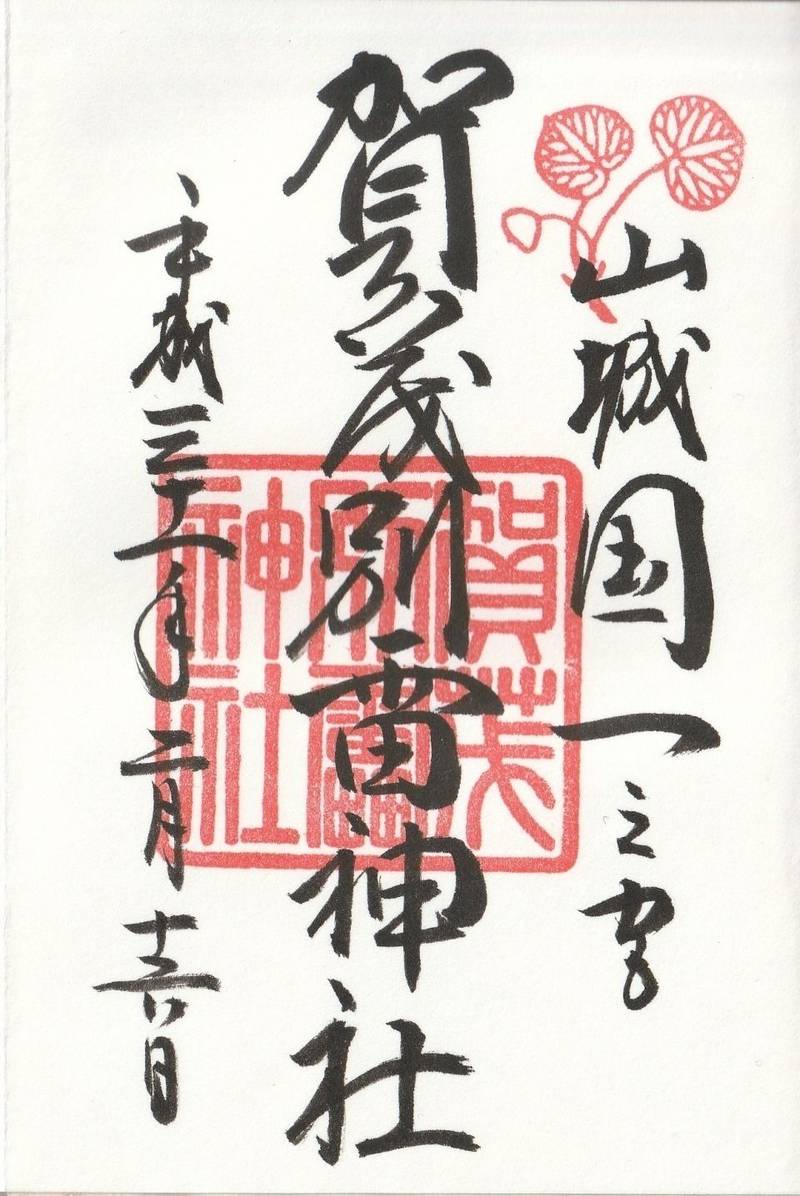 山城国一之宮
賀茂別雷神社
平成三十一年二月十六日
賀茂別雷神社